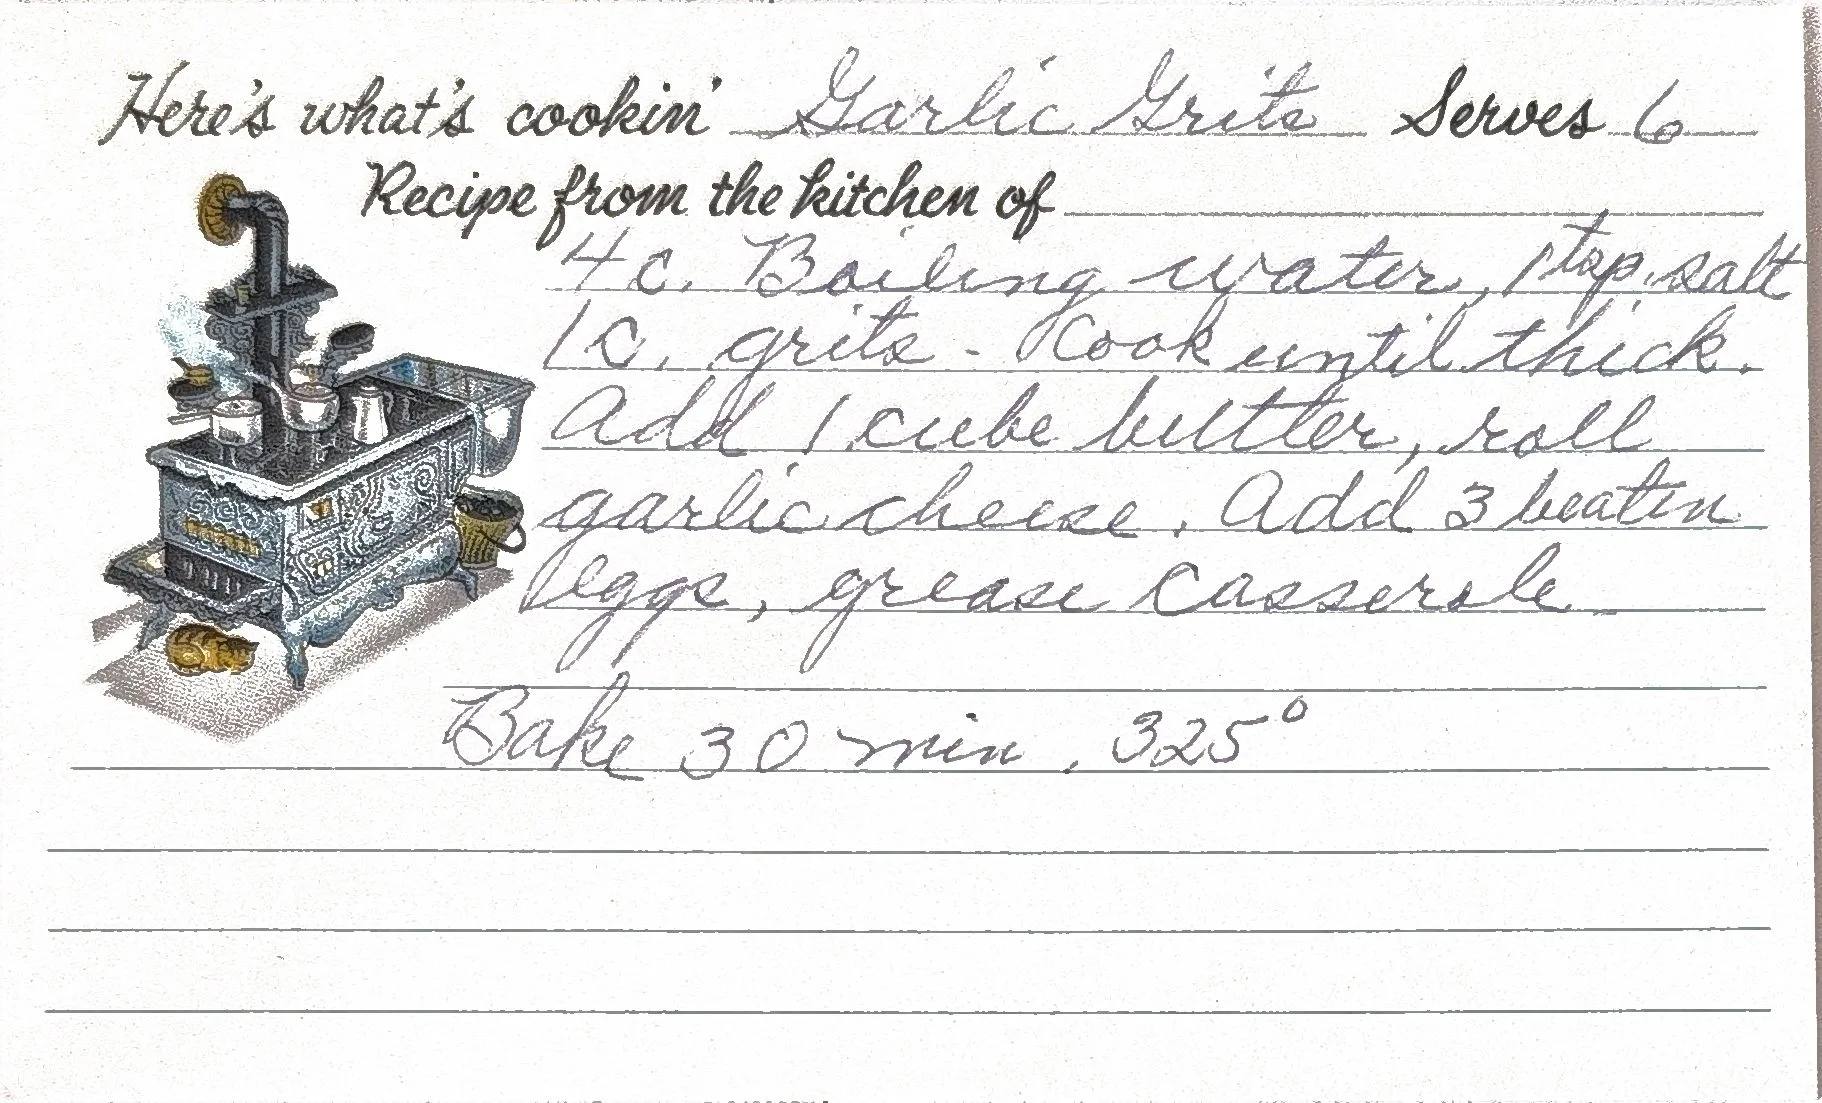 Here's what's cookin' Garlic Grits Serves 6
Recipe from the kitchen of
4 c. Boiling water, 1 tsp. salt
1 c. grits - Cook until thick.
Add 1 cube butter, roll
garlic cheese. Add 3 beaten
eggs, grease casserole
Bake 30 min. 325°